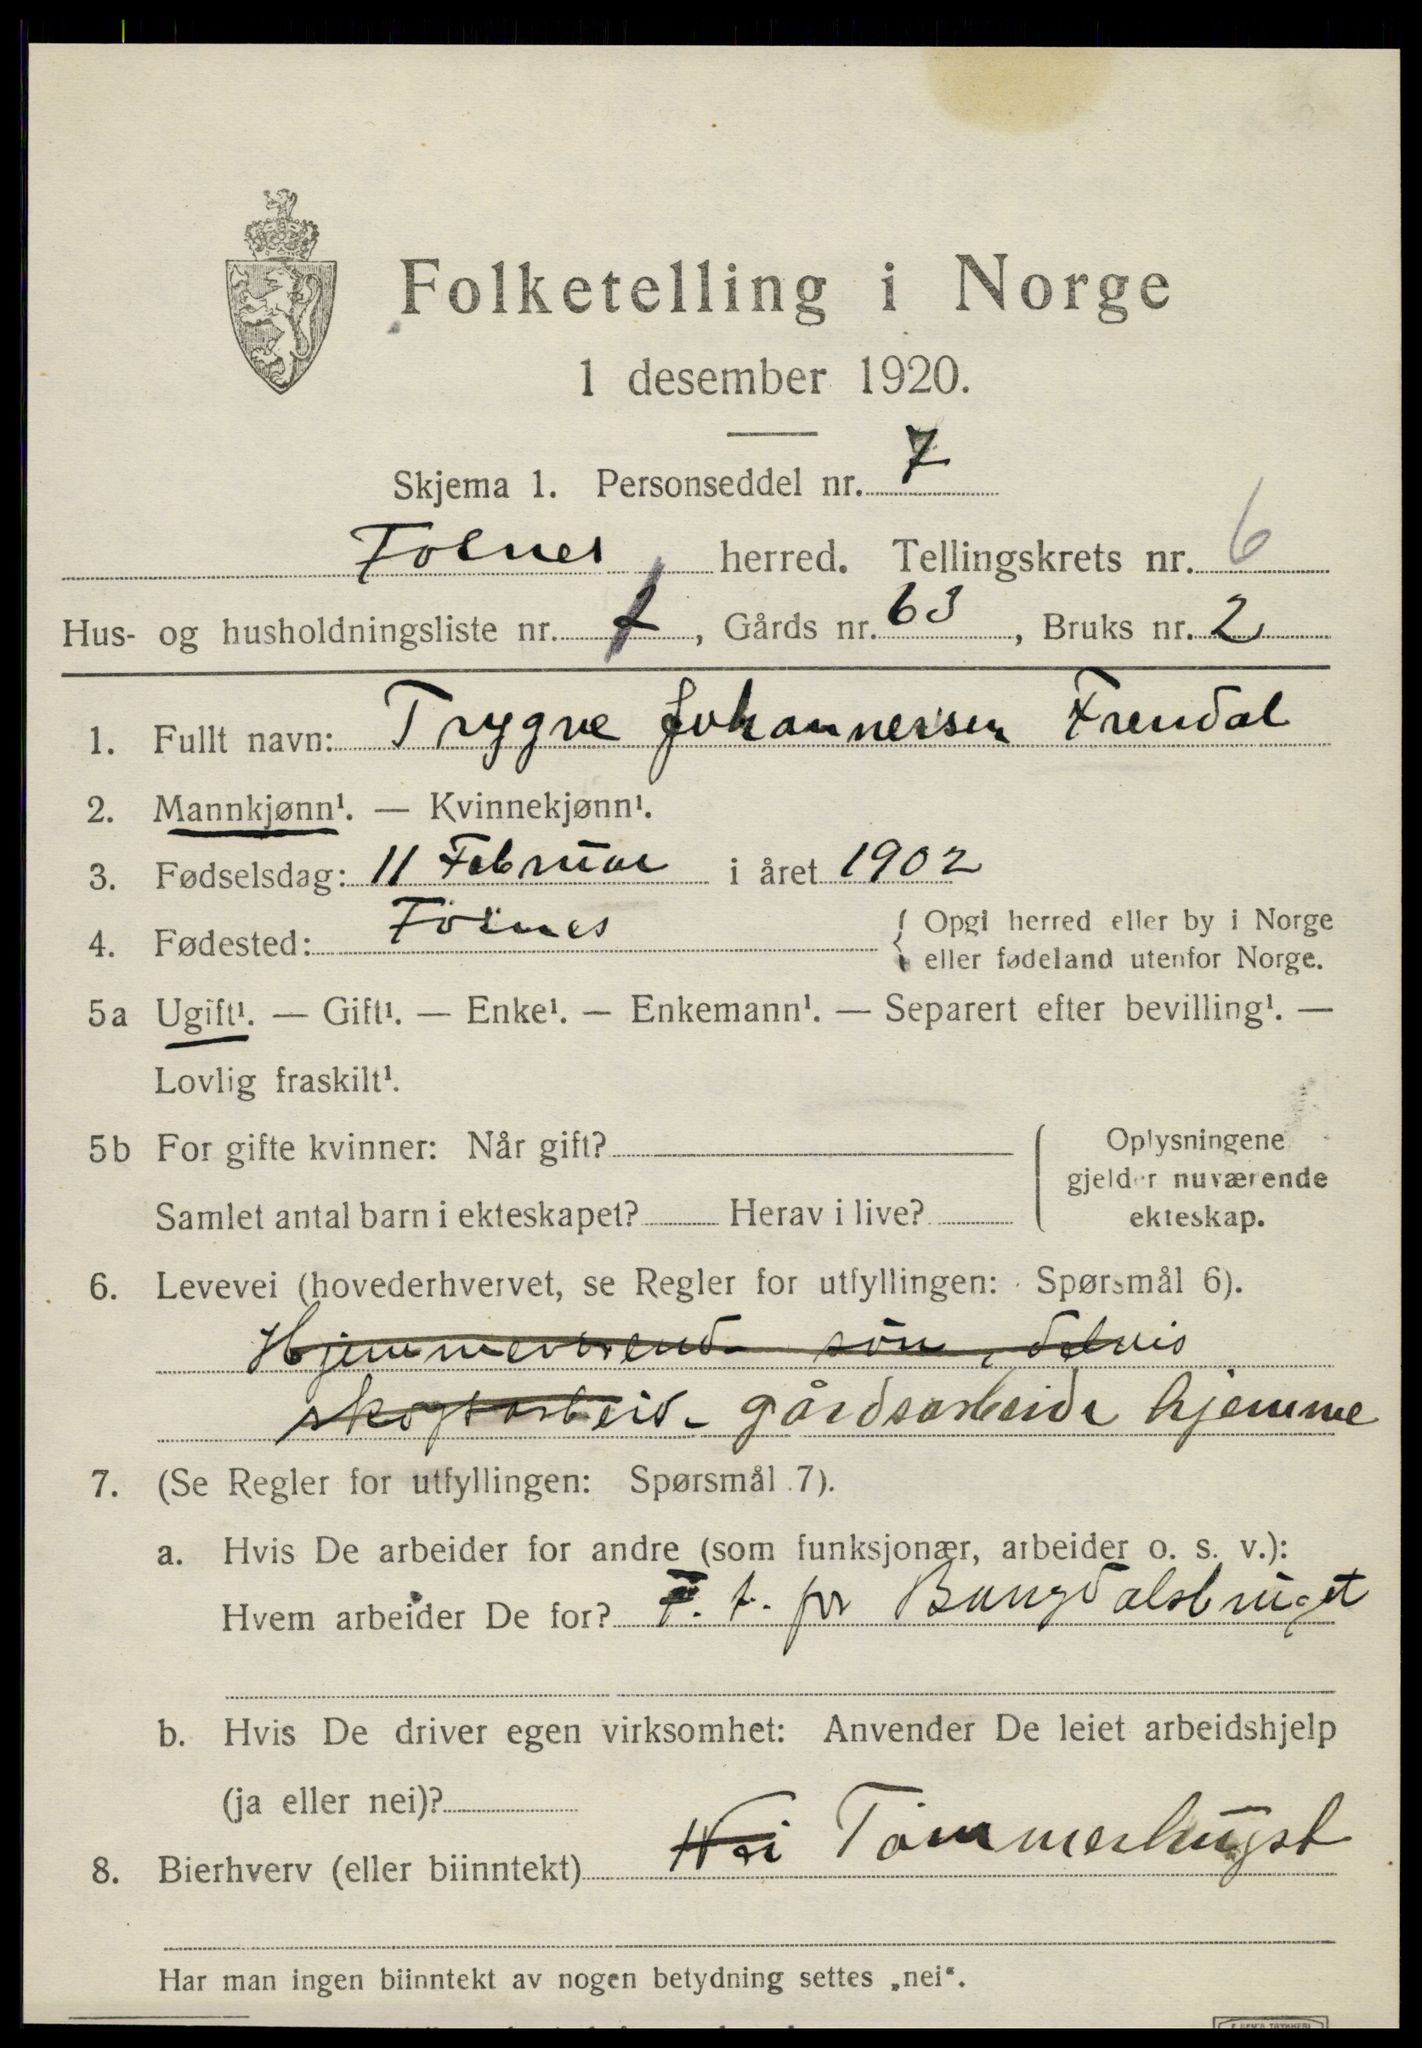 Folketelling i Norge
1 desember 1920.
Skjema 1. Personseddel nr. 7
Fosnes herred. Tellingskrets nr. 6
Hus- og husholdningsliste nr. 1, Gårds nr. 63, Bruks nr. 2
1. Fullt navn: Trygve Johannessen Frendal
2. Mannkjønn¹. — Kvinnekjønn¹.
3. Fødselsdag: 11 Februar i året 1902
4. Fødested: Fosnes { Opgi herred eller by i Norge
eller fødeland utenfor Norge.
5a Ugift¹. — Gift¹. — Enke¹. — Enkemann¹. — Separert efter bevilling¹. —
Lovlig fraskilt¹.
5b For gifte kvinner: Når gift? Oplysningene
gjelder nuværende
Samlet antal barn i ekteskapet? Herav i live? ekteskap.
6. Levevei (hovederhvervet, se Regler for utfyllingen: Spørsmål 6).
Hjemmeværend. søn, delvis
skogsarbeid. gårdsarbeide hjemme
7. (Se Regler for utfyllingen: Spørsmål 7).
a. Hvis De arbeider for andre (som funksjonær, arbeider o. s. v.):
Hvem arbeider De for? F. t. for Bangdalsbruget
b. Hvis De driver egen virksomhet: Anvender De leiet arbeidshjelp
(ja eller nei)?
8. Bierhverv (eller biinntekt) Nei Tømmerhugst
Har man ingen biinntekt av nogen betydning settes „nei“.